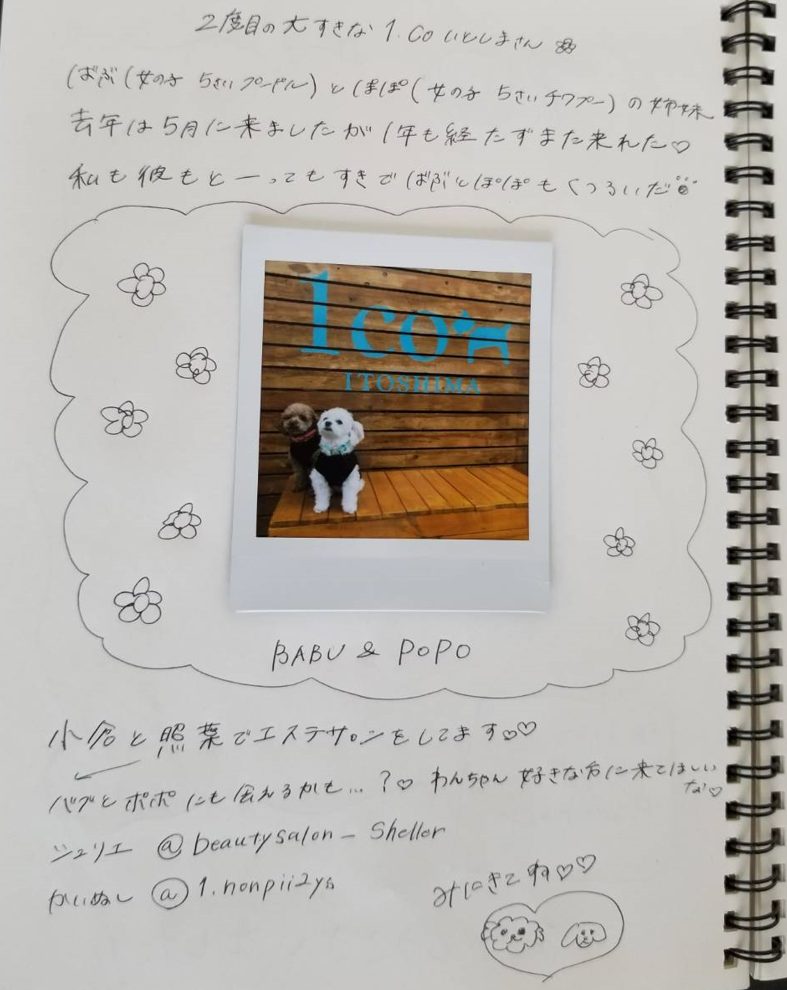 2度目の大すきな 1.Co いとしまさん
ばぶ(女の子 5さい プードル)とぽぽ(女の子 5さい チワプー)の姉妹
去年は5月に来ましたが1年も経たずまた来れた♡
私も彼もと一ってもすきでばぶとぽぽもくつろいだ
1co
ITOSHIMA
BABU & POPO
小倉と照葉でエステサロンをしてます♡♡
バブとポポにも会えるかも…?♡ わんちゃん好きな方に来てほしい
な♡
シュリエ @beautysalon_sheller
かいぬし @1.nonpii2ya
みにきてね♡♡